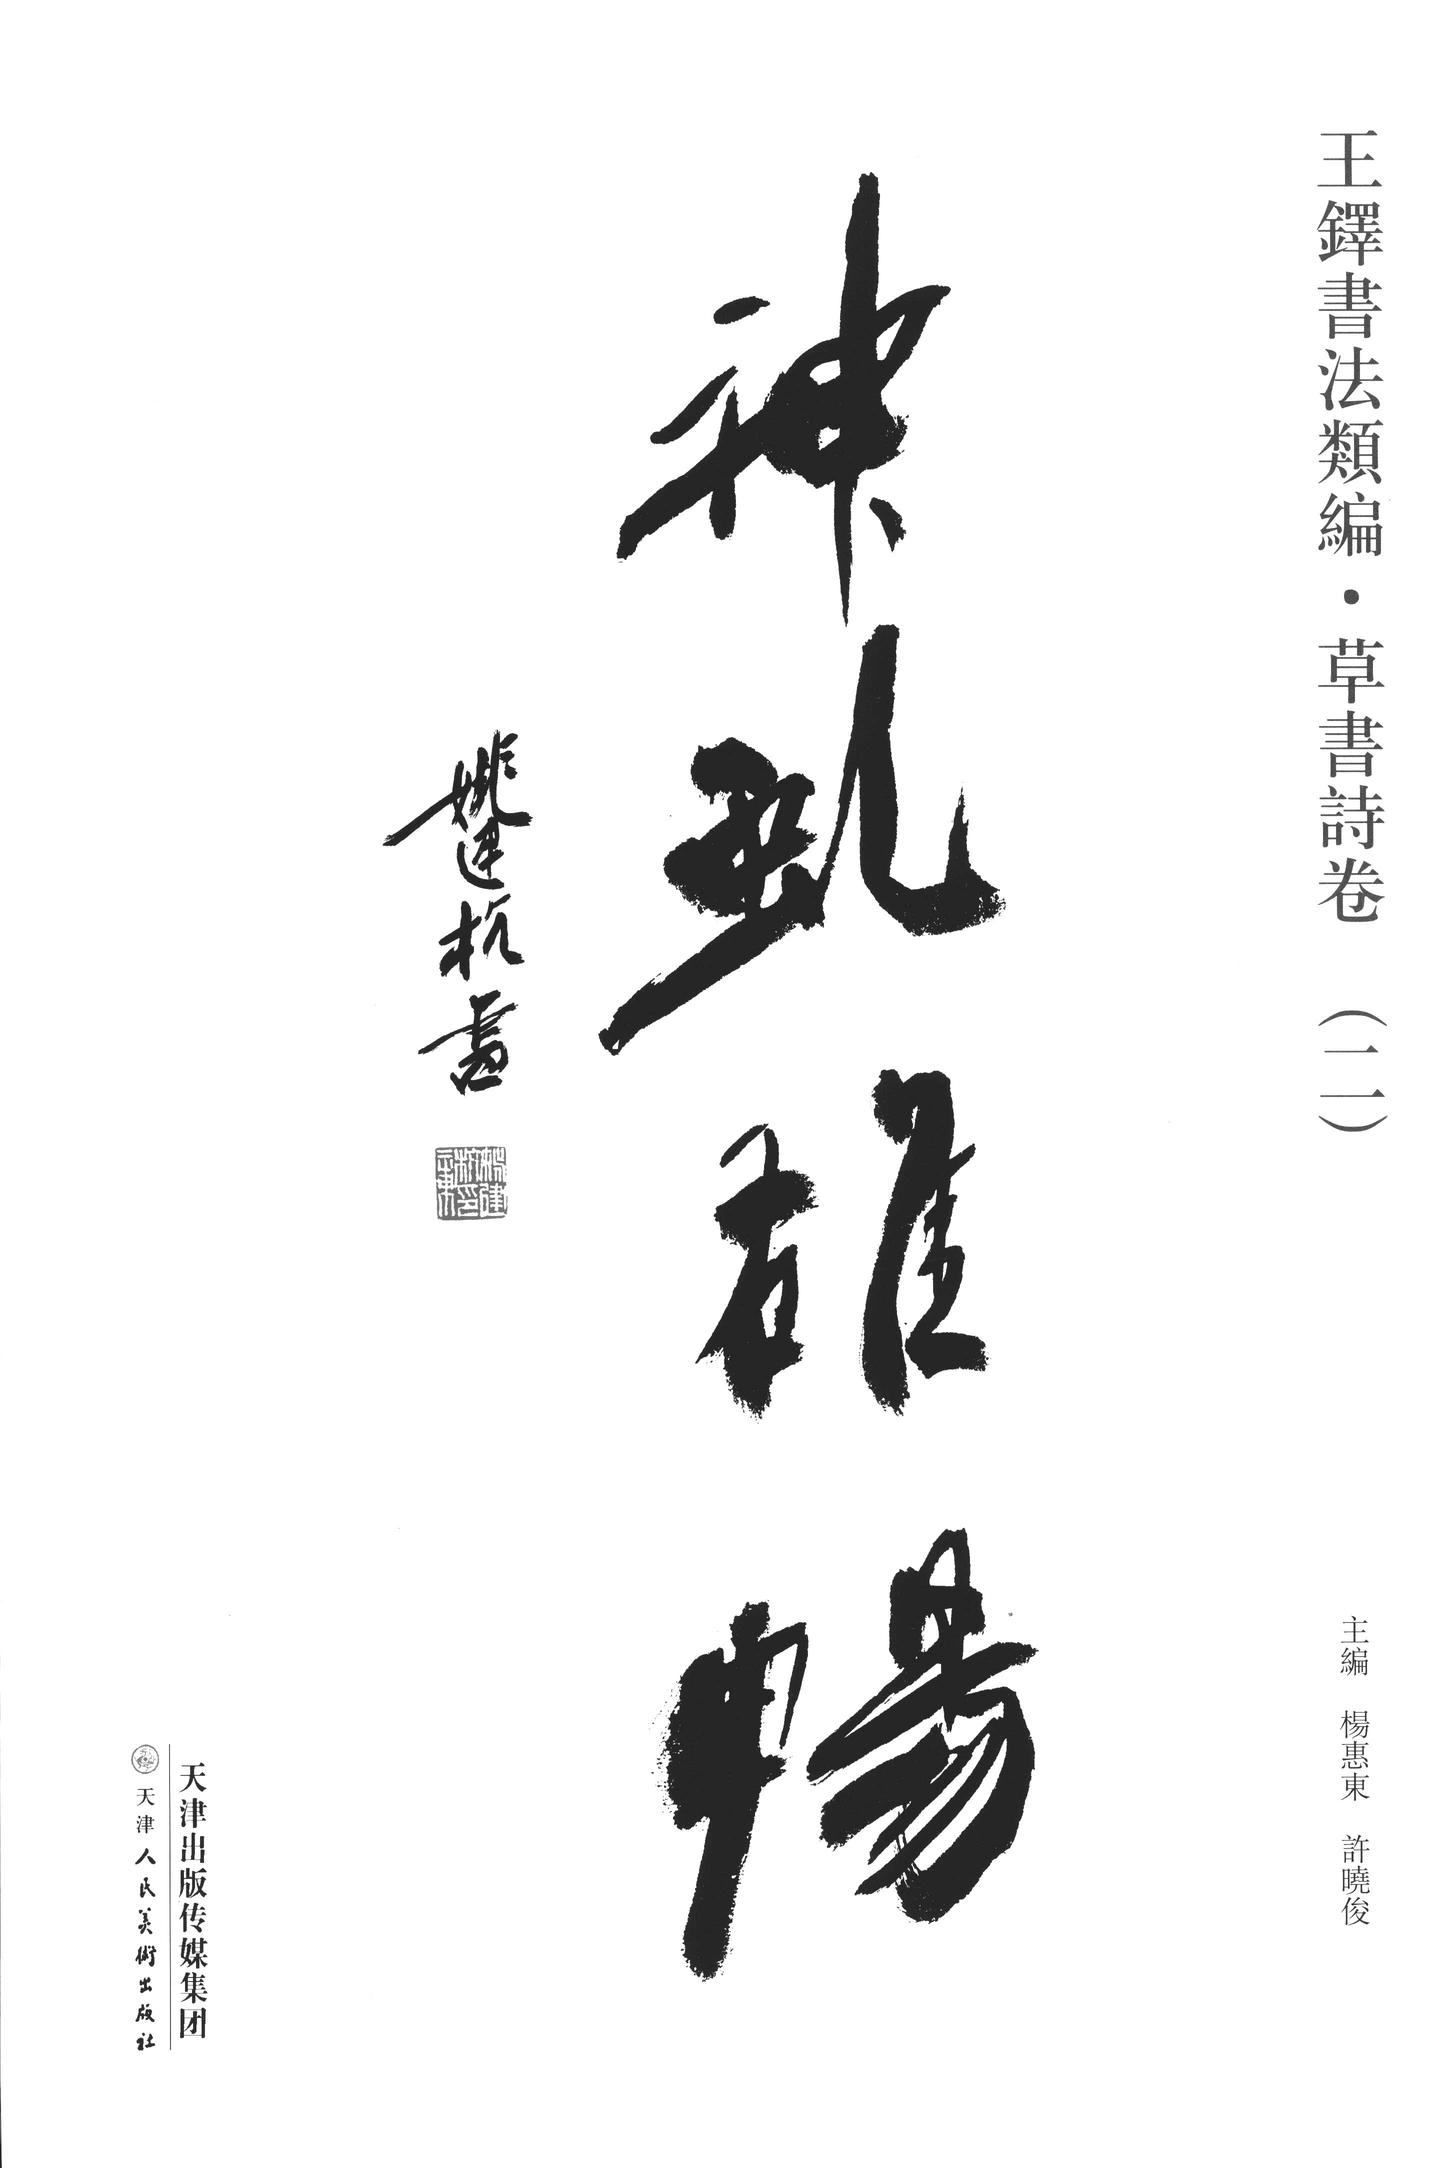 王鐸書法類編・草書詩卷（二）
主編 楊惠東 許曉俊
神虬雄暢
姚建杭書
天津出版传媒集团
天津人民美術出版社